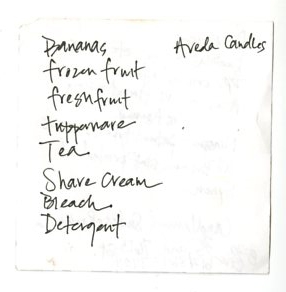 Bananas
Aveda Candles
frozen fruit
fresh fruit
tupperware
Tea
Shave Cream
Bleach
Detergent